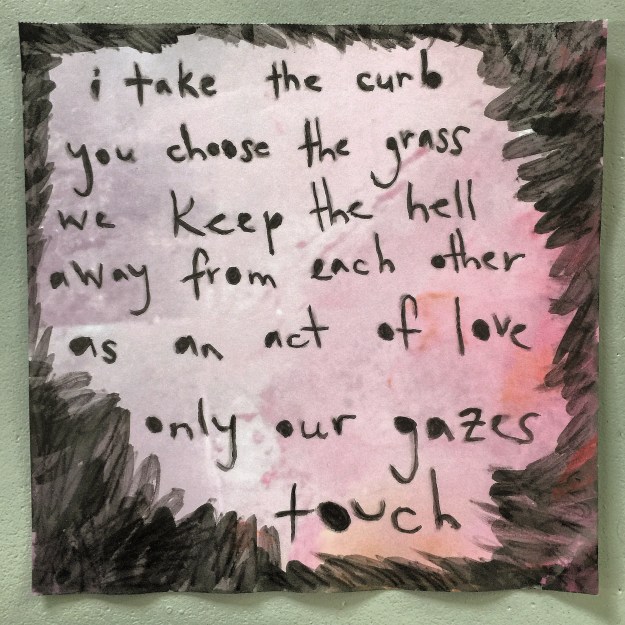 i take the curb
you choose the grass
we keep the hell
away from each other
as an act of love
only our gazes
touch